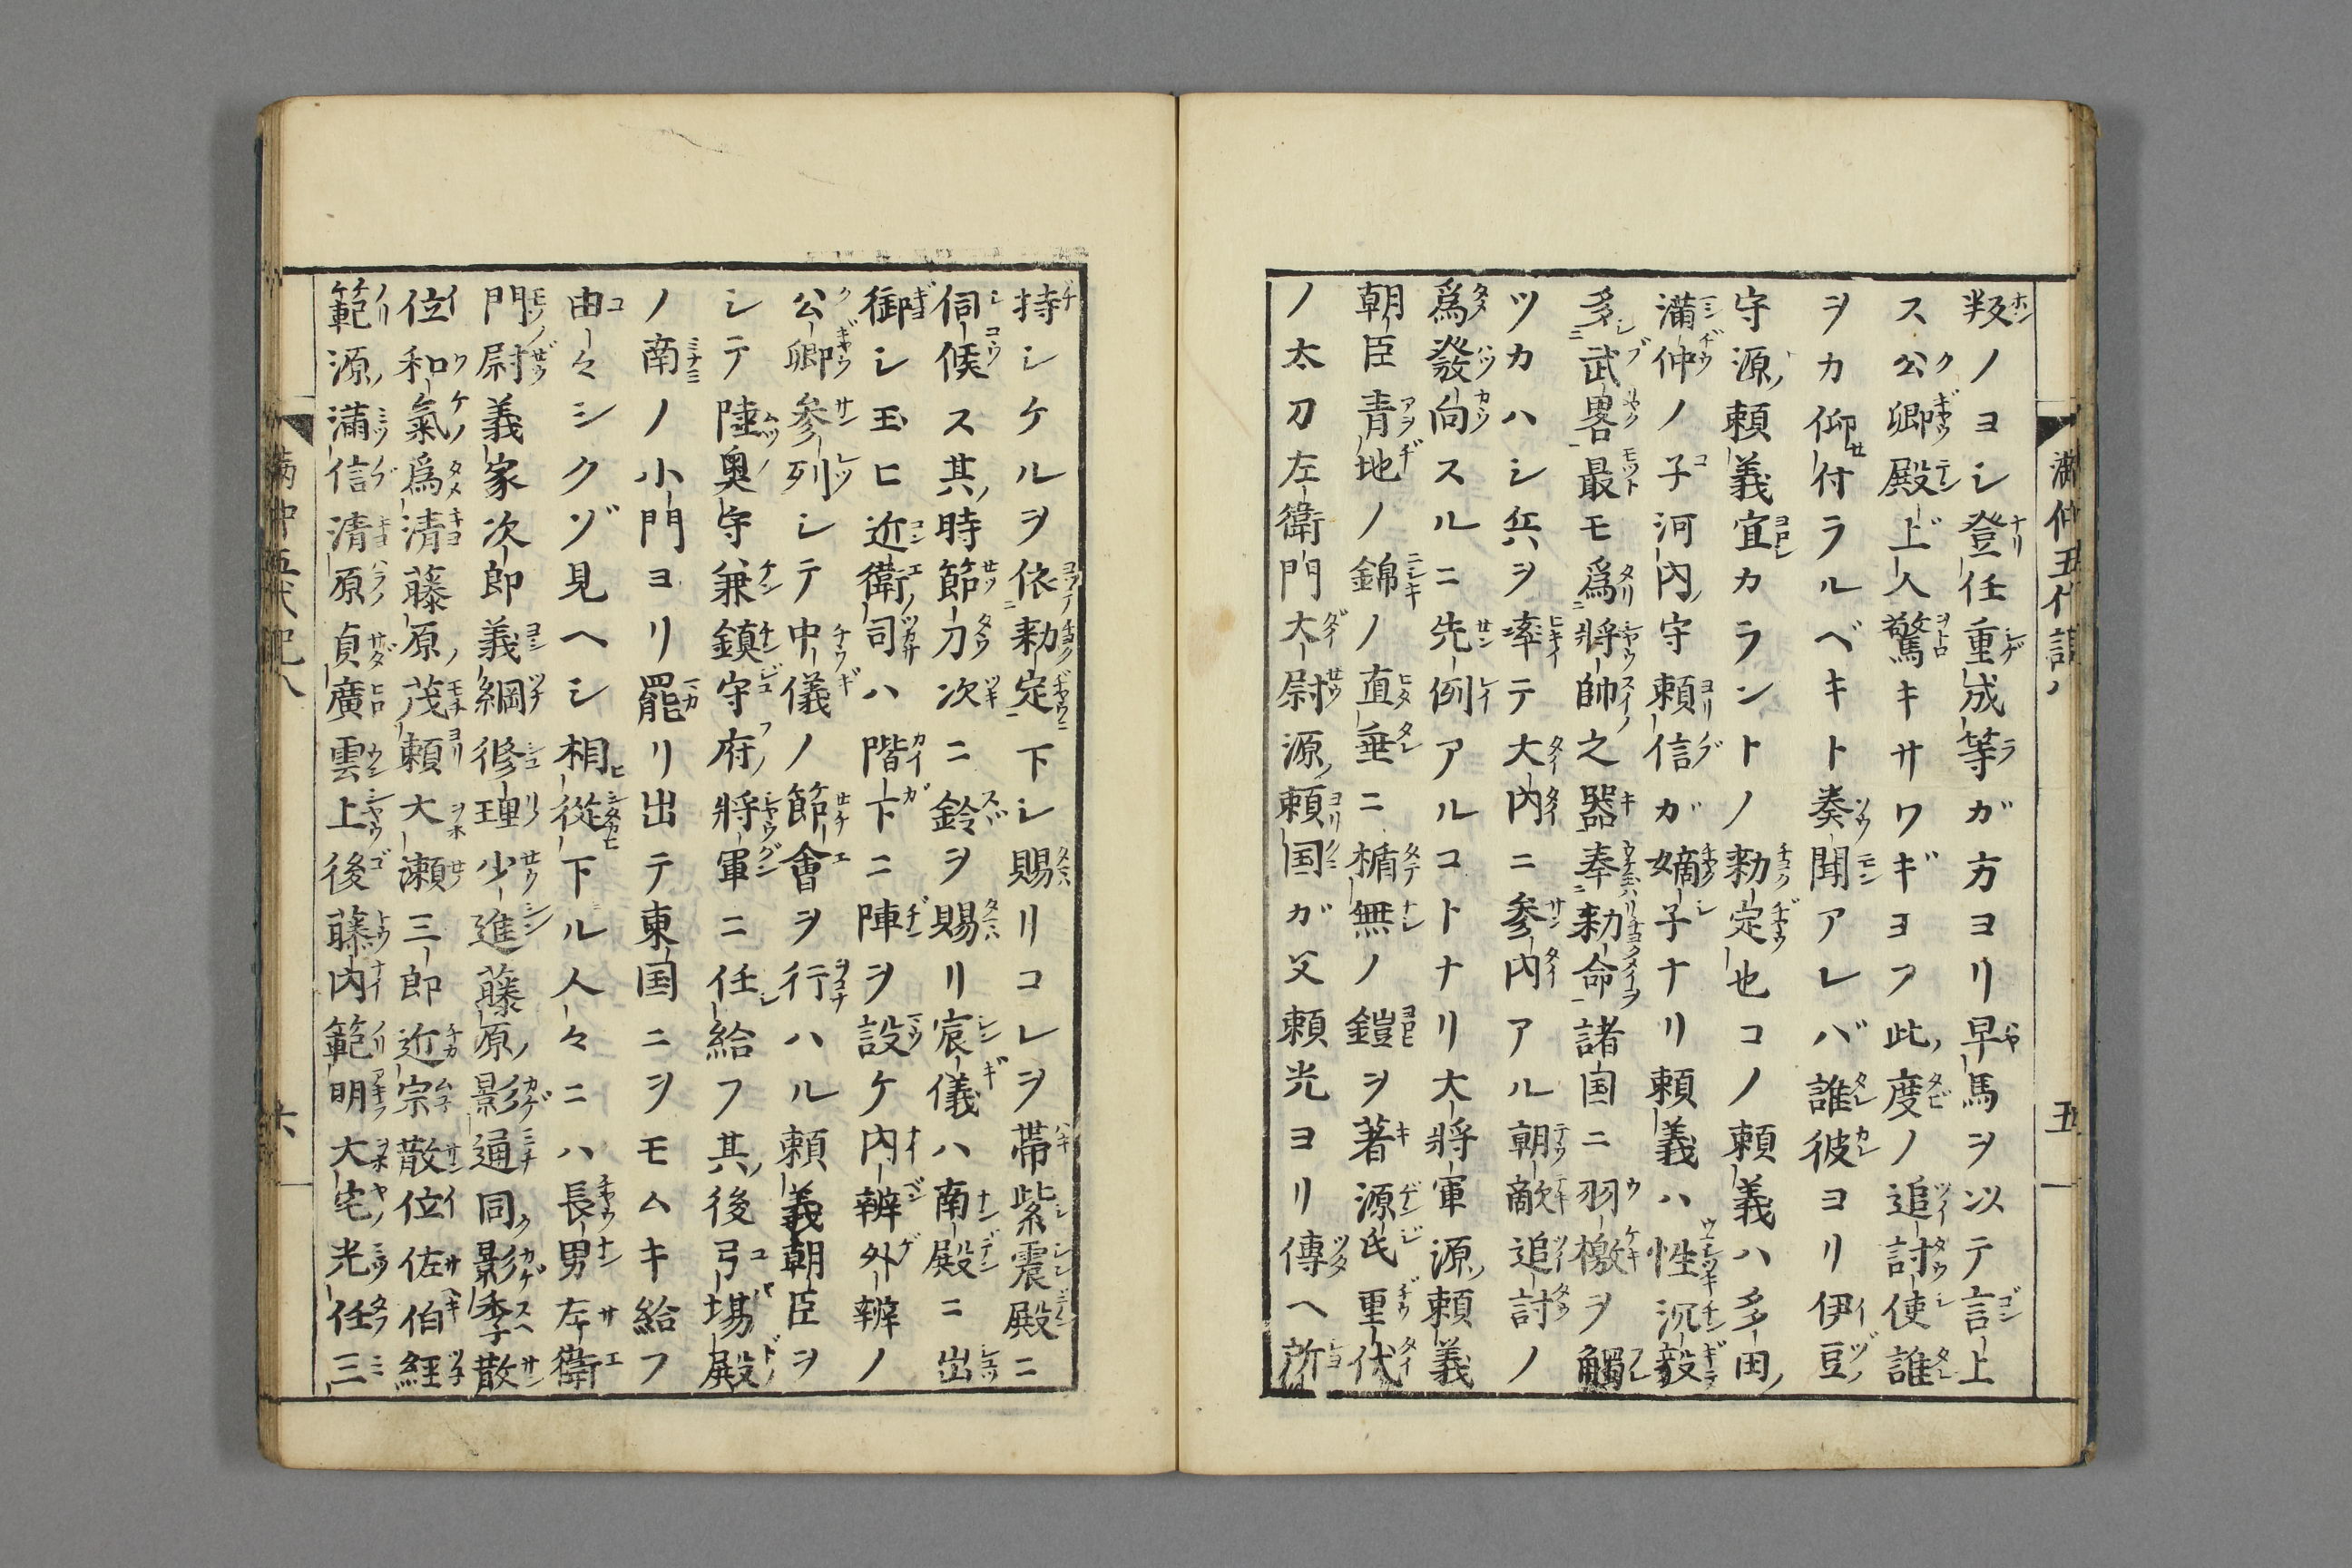 叛ノヨシ登任重成等ガ方ヨリ早馬ヲ以テ言上
ス公卿殿上人驚キサワギヨフ此度ノ追討使誰
ヲカ仰付ラルベキト奏聞アレバ誰彼ヨリ伊豆
守源頼義宜カラントノ勅定也コノ頼義ハ多田
満仲ノ子河内守頼信ガ嫡子ナリ頼義ハ性沉毅
多武畧最モ爲將帥之器奉勅命諸国ニ羽檄ヲ觸
ツカハシ兵ヲ率テ大内ニ参内アル朝敵追討ノ
爲發向スルニ先例アルコトナリ大將軍源頼義
朝臣青地ノ錦ノ直垂ニ楯無ノ鎧ヲ著源氏重代
ノ太刀左衛門大尉源頼国ガ父頼光ヨリ傳ヘ所
満仲五代記八
五
持シケルヲ依勅定下シ賜リコレヲ帶紫震殿ニ
伺候ス其時節刀次ニ鈴ヲ賜リ宸儀ハ南殿ニ出
御シ玉ヒ近衛司ハ階下ニ陣ヲ設ケ内辨外辨ノ
公卿参列シテ中儀ノ節會ヲ行ハル頼義朝臣ヲ
シテ陸奥守兼鎮守府將軍ニ任給フ其後弓場殿
ノ南ノ小門ヨリ罷リ出テ東国ニヲモムキ給フ
由々シクゾ見ヘシ相從下ル人々ニハ長男左衛
門尉義家次郎義綱修理少進藤原影通同影季散
位和氣爲清藤原茂頼大瀬三郎近宗散位佐伯經
範源満信清原貞廣雲上後藤内範明大宅光任三
満仲五代記八
六